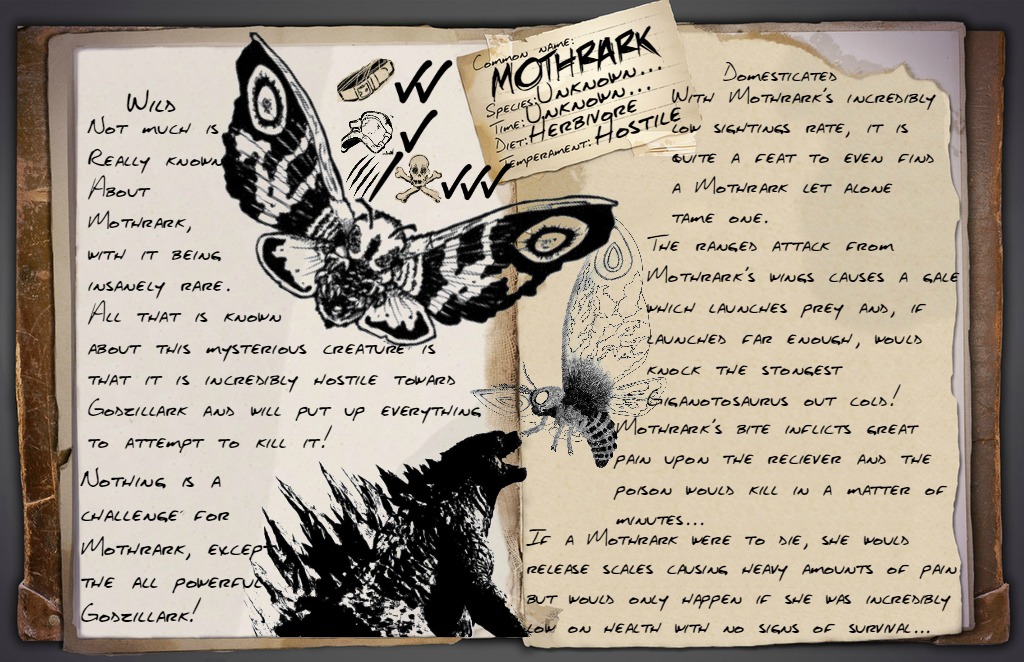 Common name:
MOTHRARK
Species: Unknown...
Time: Unknown...
Diet: Herbivore
Temperament: Hostile
Wild
Not much is
Really known
About
Mothrark,
with it being
insanely rare.
All that is known
about this mysterious creature is
that it is incredibly hostile toward
Godzillark and will put up everything
to attempt to kill it!
Nothing is a
challenge for
Mothrark, except
the all powerful
Godzillark!
Domesticated
With Mothrark's incredibly
low sightings rate, it is
quite a feat to even find
a Mothrark let alone
tame one.
The ranged attack from
Mothrark's wings causes a gale
which launches prey and, if
launched far enough, would
knock the stongest
Giganotosaurus out cold!
Mothrark's bite inflicts great
pain upon the reciever and the
poison would kill in a matter of
minutes...
If a Mothrark were to die, she would
release scales causing heavy amounts of pain
but would only happen if she was incredibly
low on health with no signs of survival...